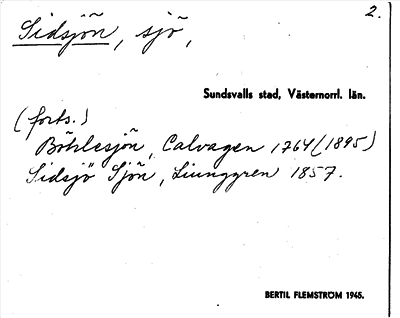 2.
Sidsjön, sjö,
Sundsvalls stad, Västernorrl. län.
(forts.)
Böhlesjön, Calvagen 1764 (1895)
Sidsjö Sjön, Liunggren 1857.
BERTIL FLEMSTRÖM 1945.